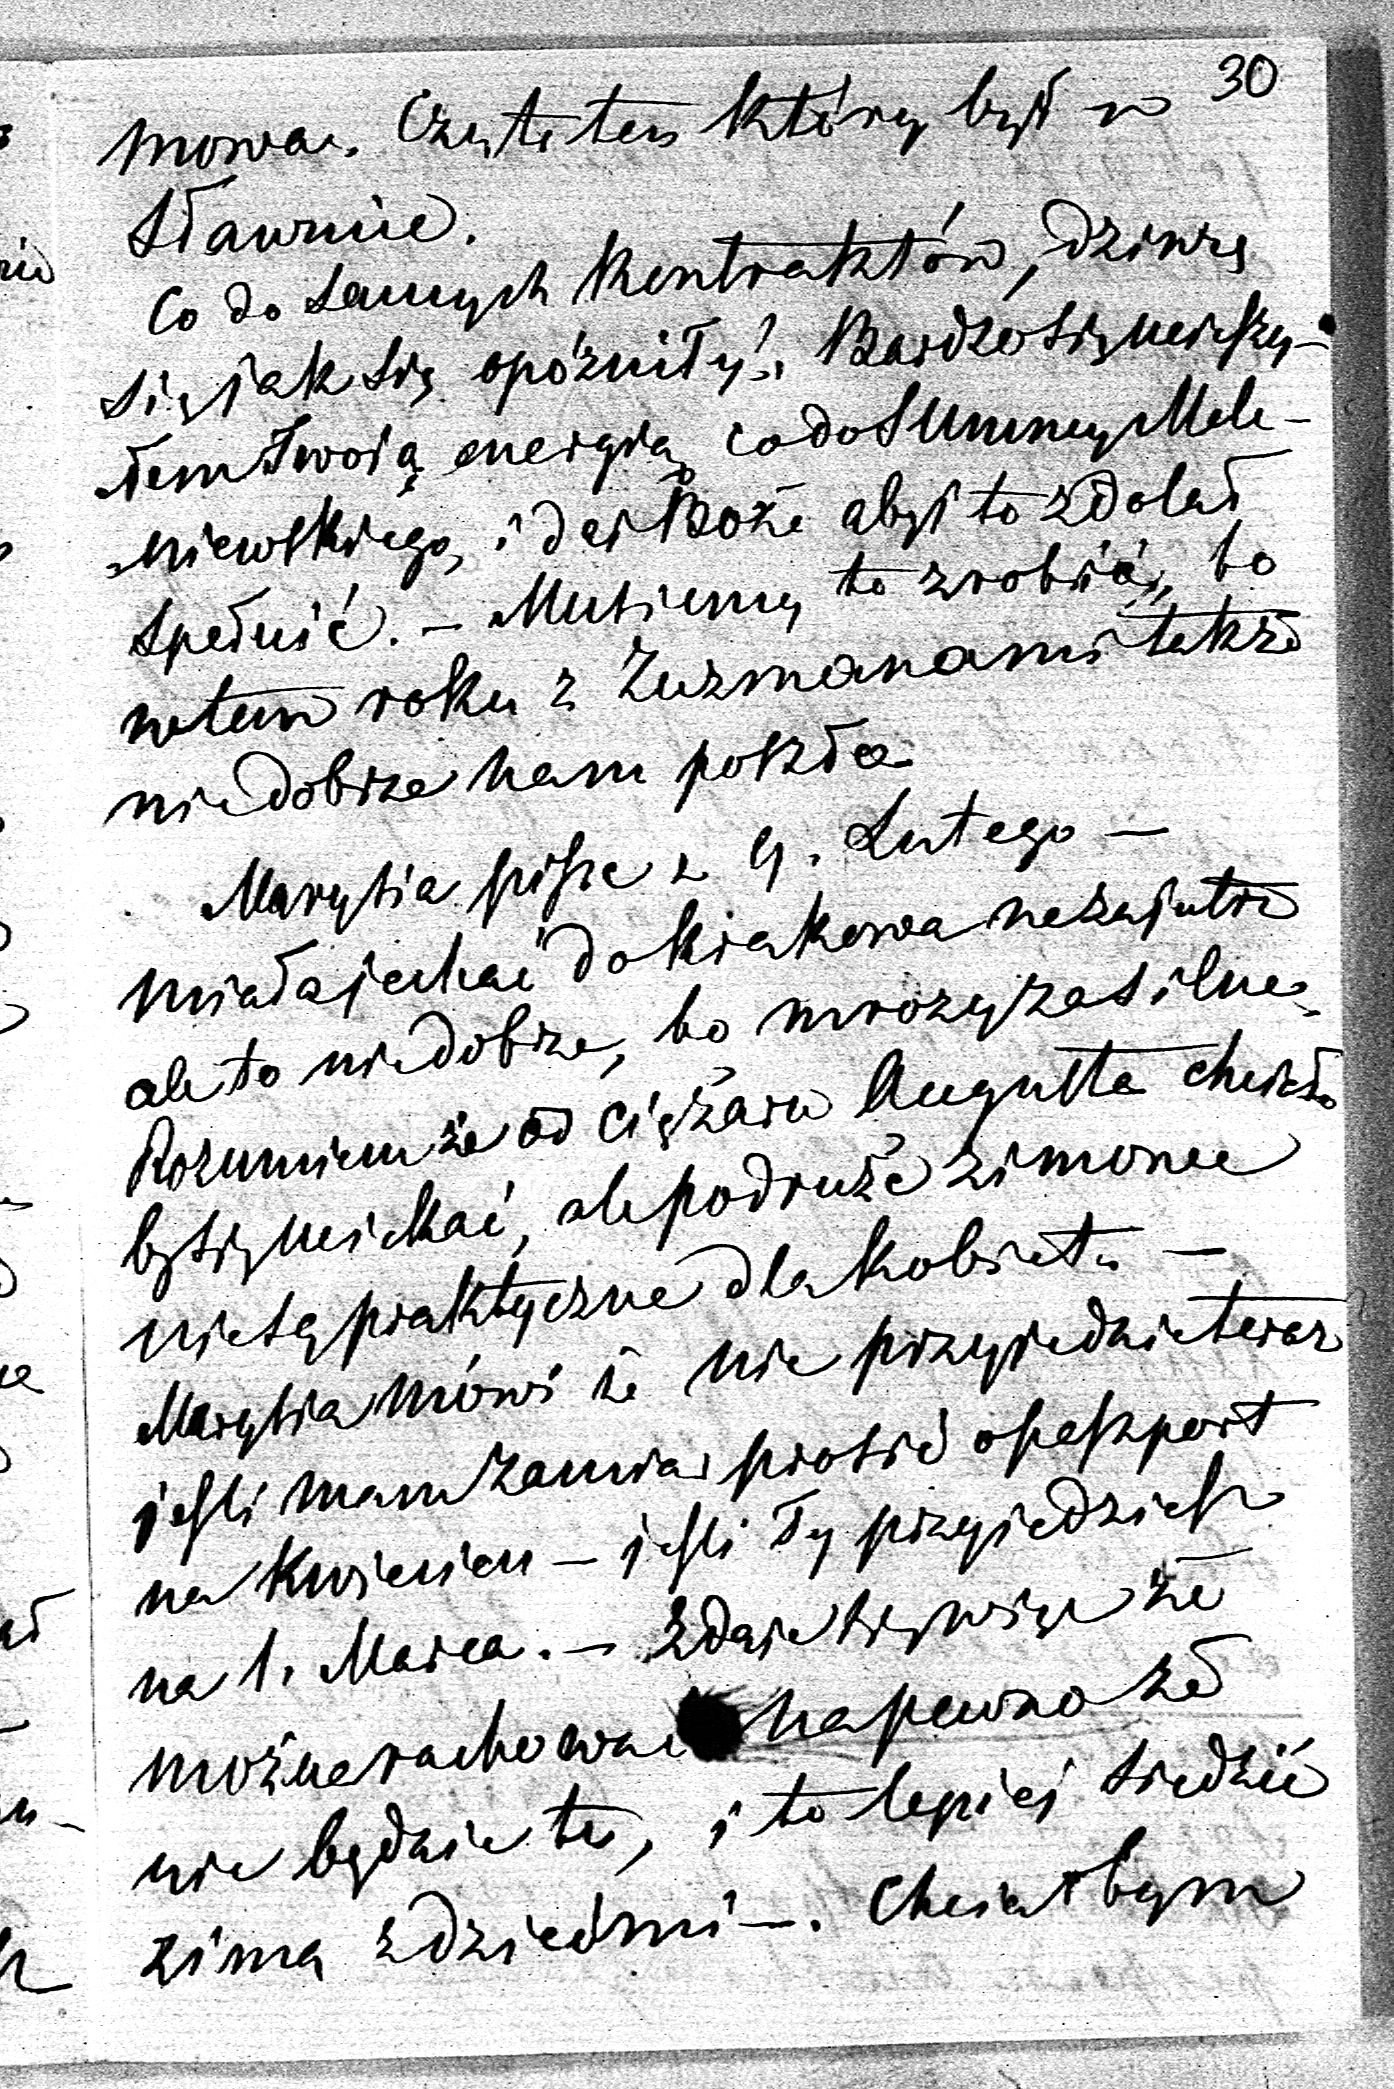 30
mowac. Czy to ten który był w
Sławnie.
Co do samych Kontraktów, dziwię
się jak się opóźniły. Bardzo się ucieszy-
łem Twoją energią co do Summy Mele-
niewskiego, i daj Boże abyś to zdołał
spełnić. – Musiemy to zrobić, bo
w tem roku z Zuzmanami także
nie dobrze nam poszło
Marysia pisze z 9. Lutego –
miała jechać do Krakowa nazajutrz
ale to nie dobrze, bo mrozy za silne.
Rozumiem że od ciężaru Augusta chciała
by się uciekać, ale podruże zimowe
nie są praktyczne dla kobiet. –
Marysia mówi że nie przyjedzie teraz
jeśli mam zamiar prosić o paszport
na Kwiecien – jeśli Ty przyjedziesz
na 1. Marca. – Zdaje się więc że
można rachować napewno że
nie będzie tu, i to lepiej siedzić
zimą z dziećmi –. Chciałbym